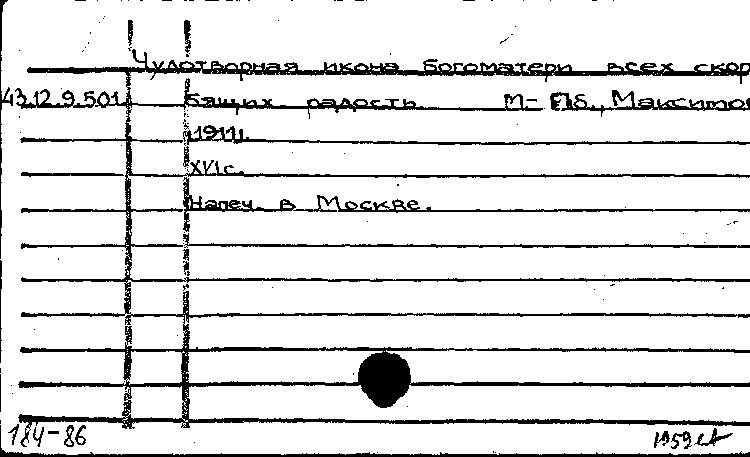 Чудотворная икона богоматери всех скор
43.12.9.501. бящих радость. М- Пб., Максимов
1911.
XVI с.
Напеч. в Москве.
184-86